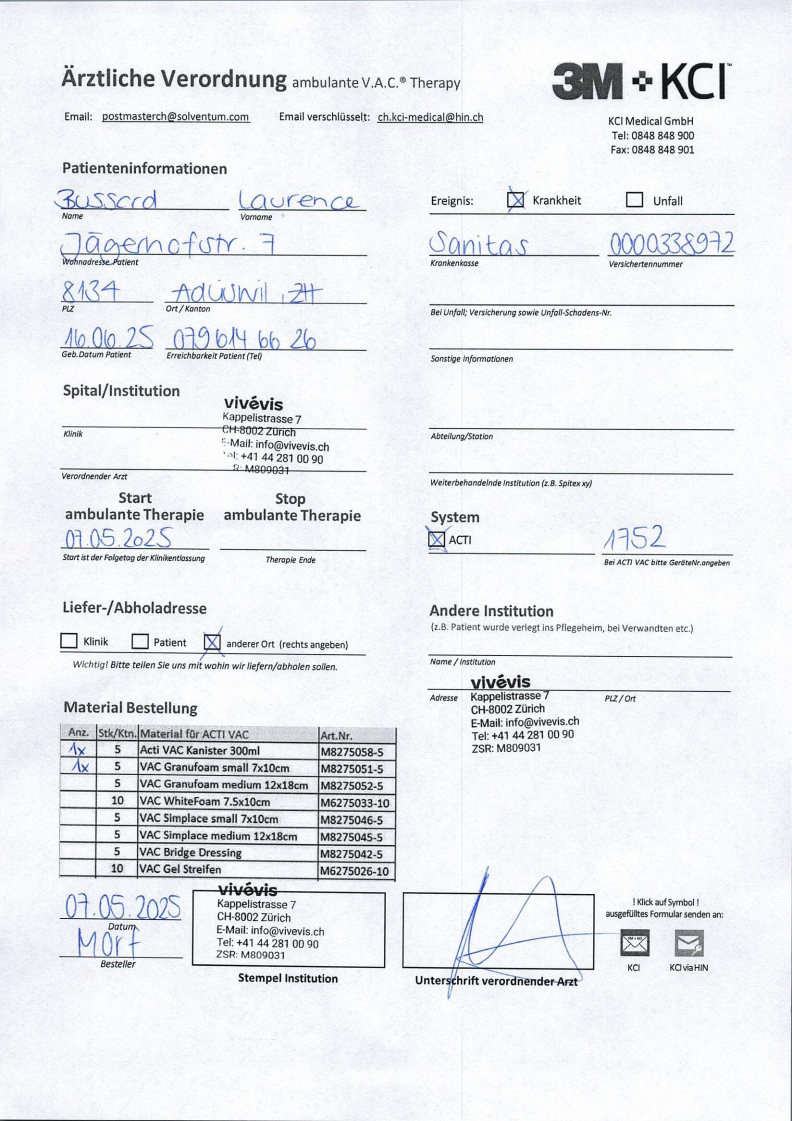 Ärztliche Verordnung ambulante V.A.C.® Therapy
3M KCI™
Email: postmasterch@solventum.com Email verschlüsselt: ch.kci-medical@hin.ch
KCI Medical GmbH
Tel: 0848 848 900
Fax: 0848 848 901
Patienteninformationen
Bussard Laurence
Name Vorname
Jägerhofstr. 7
Wohnadresse Patient
8134 Adliswil, ZH
PLZ Ort / Kanton
16.06.25 079 614 66 26
Geb.Datum Patient Erreichbarkeit Patient (Tel)
Ereignis: Krankheit Unfall
Sanitas 0000338972
Krankenkasse Versichertennummer
Bei Unfall; Versicherung sowie Unfall-Schadens-Nr.
Sonstige Informationen
Spital/Institution
vivévis
Kappelistrasse 7
CH-8002 Zürich
E-Mail: info@vivevis.ch
Tel: +41 44 281 00 90
R: M809031
Klinik
Verordnender Arzt
Abteilung/Station
Weiterbehandelnde Institution (z.B. Spitex xy)
Start Stop
ambulante Therapie ambulante Therapie
07.05.2025
Start ist der Folgetag der Klinikentlassung Therapie Ende
System
ACTI 1752
Bei ACTI VAC bitte GeräteNr.angeben
Liefer-/Abholadresse
Klinik Patient anderer Ort (rechts angeben)
Wichtig! Bitte teilen Sie uns mit wohin wir liefern/abholen sollen.
Andere Institution
(z.B. Patient wurde verlegt ins Pflegeheim, bei Verwandten etc.)
Name / Institution
vivévis
Adresse Kappelistrasse 7 PLZ / Ort
CH-8002 Zürich
E-Mail: info@vivevis.ch
Tel: +41 44 281 00 90
ZSR: M809031
Material Bestellung
Anz. Stk/Ktn. Material für ACTI VAC Art.Nr.
1x 5 Acti VAC Kanister 300ml M8275058-5
1x 5 VAC Granufoam small 7x10cm M8275051-5
5 VAC Granufoam medium 12x18cm M8275052-5
10 VAC WhiteFoam 7.5x10cm M6275033-10
5 VAC Simplace small 7x10cm M8275046-5
5 VAC Simplace medium 12x18cm M8275045-5
5 VAC Bridge Dressing M8275042-5
10 VAC Gel Streifen M6275026-10
07.05.2025
Datum
Morf
Besteller
vivévis
Kappelistrasse 7
CH-8002 Zürich
E-Mail: info@vivevis.ch
Tel: +41 44 281 00 90
ZSR: M809031
Stempel Institution
Unterschrift verordnender Arzt
! Klick auf Symbol !
ausgefülltes Formular senden an:
KCI KCI via HIN